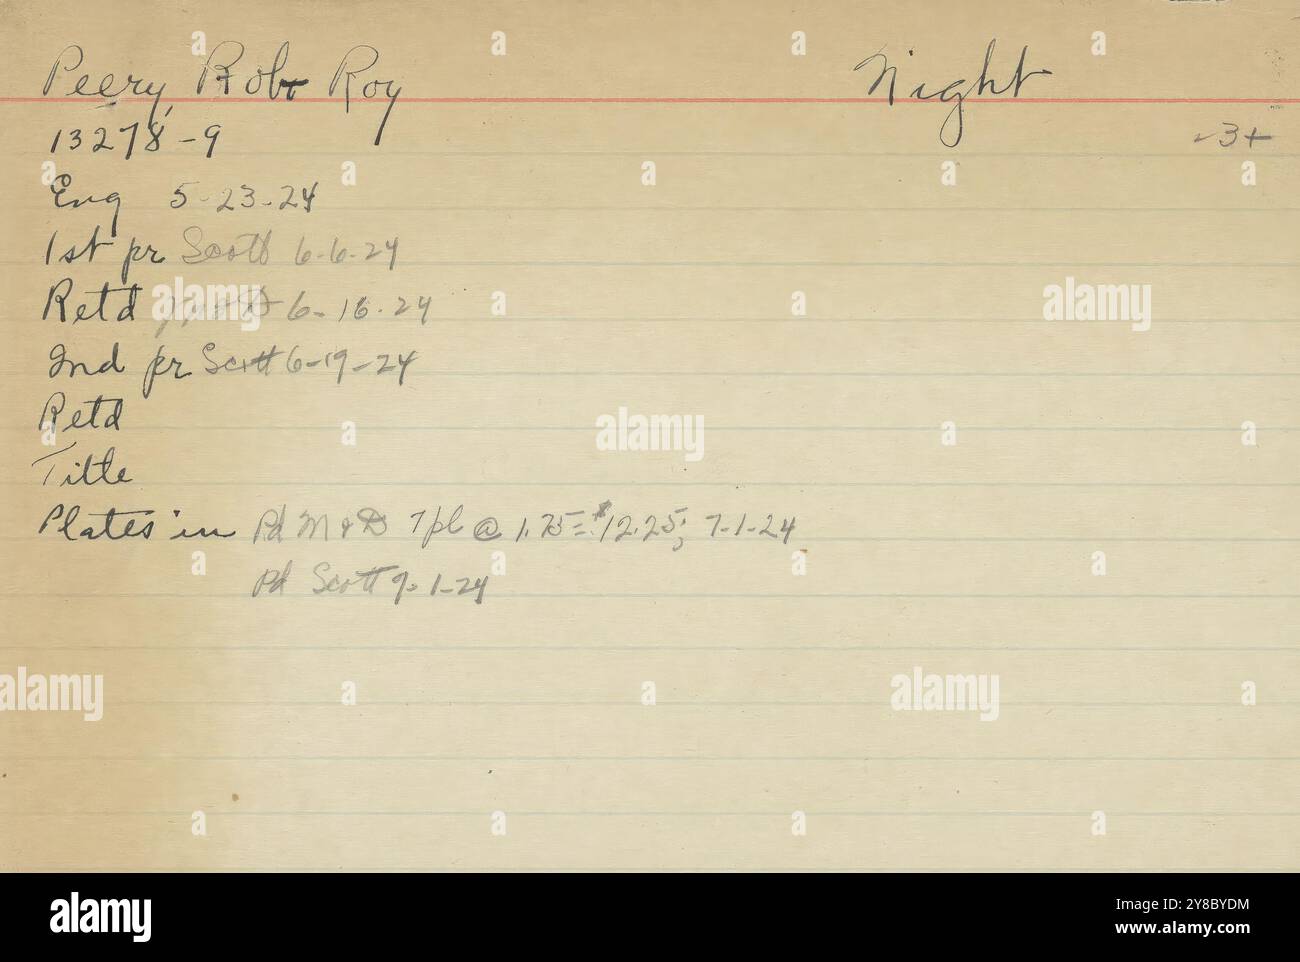 Peery, Robt Roy Night
13278-9 -3+
Eng 5-23-24
1st pr Scott 6-6-24
Retd M & D 6-16-24
2nd pr Scott 6-19-24
Retd
Title
Plates in Pd M & D 7 pl @ 1.75 = $12.25; 7-1-24
Pd Scott 9-1-24
alamy
alamy
Image ID: 2Y8BYDM
www.alamy.com